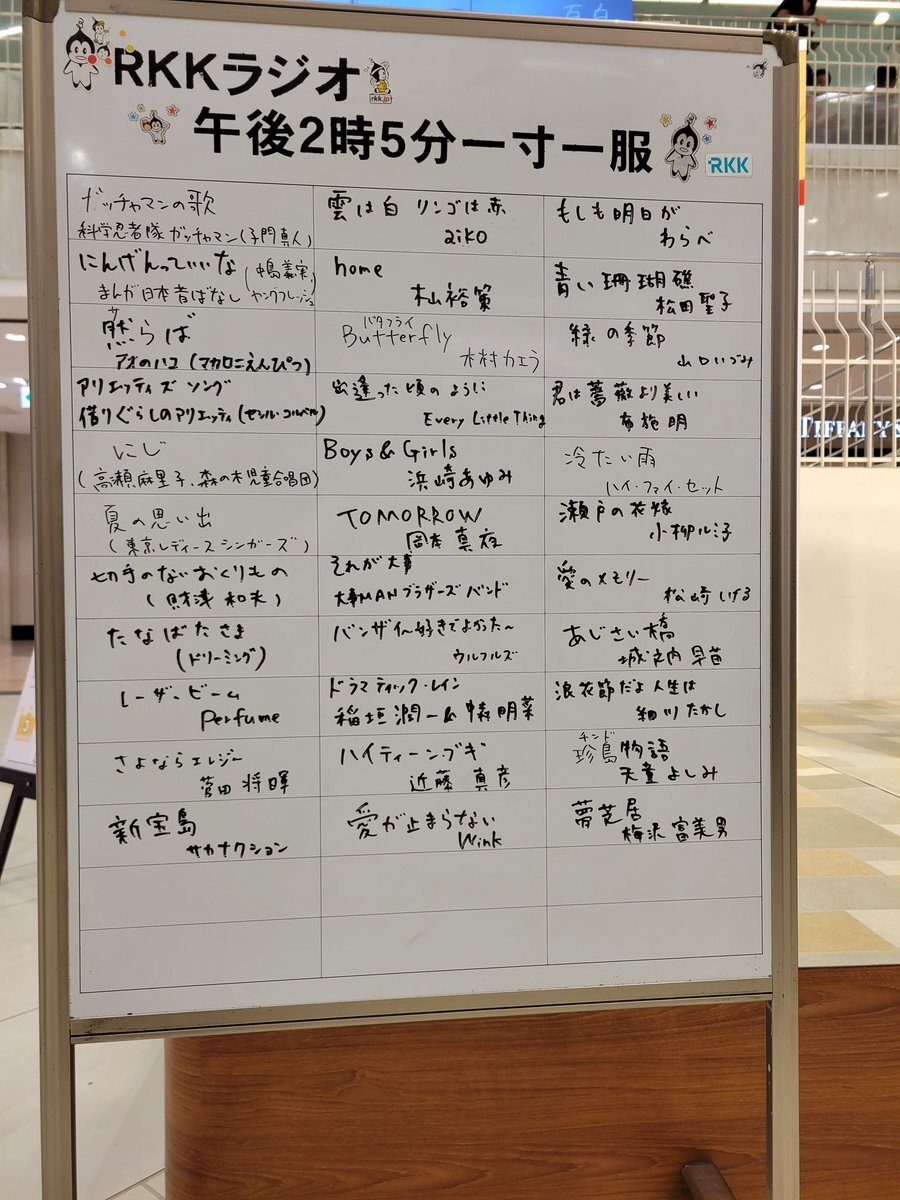 RKKラジオ
rkk.jp
午後2時5分一寸一服
RKK
ガッチャマンの歌
科学忍者隊ガッチャマン(子門真人)
にんげんっていいな
まんが日本昔ばなし
(中嶋義実,
ヤングフレッシュ)
然らば
アオのハコ(マカロニえんぴつ)
アリエッティズ ソング
借りぐらしのアリエッティ(セシル・コルベル)
にじ
(高瀬麻里子、森の木児童合唱団)
夏の思い出
(東京レディースシンガーズ)
切手のないおくりもの
(財津 和夫)
たなばたさま
(ドリーミング)
レーザービーム
Perfume
さよならエレジー
菅田 将暉
新宝島
サカナクション
雲は白 リンゴは赤
aiko
home
木山裕策
バタフライ
Butterfly
木村カエラ
出逢った頃のように
Every Little Thing
Boys & Girls
浜崎あゆみ
TOMORROW
岡本 真夜
それが大事
大事MANブラザーズバンド
バンザイ〜好きでよかった〜
ウルフルズ
ドラマティック・レイン
稲垣潤一
ハイティーン・ブギ
近藤 真彦
愛が止まらない
Wink
もしも明日が
わらべ
青い珊瑚礁
松田聖子
緑の季節
山口いづみ
君は薔薇より美しい
布施 明
冷たい雨
ハイ・ファイ・セット
瀬戸の花嫁
小柳ルミ子
愛のメモリー
松崎 しげる
あじさい橋
城之内 早苗
浪花節だよ人生は
細川 たかし
チンド
珍島物語
天童よしみ
夢芝居
梅沢 富美男
TIFFANY